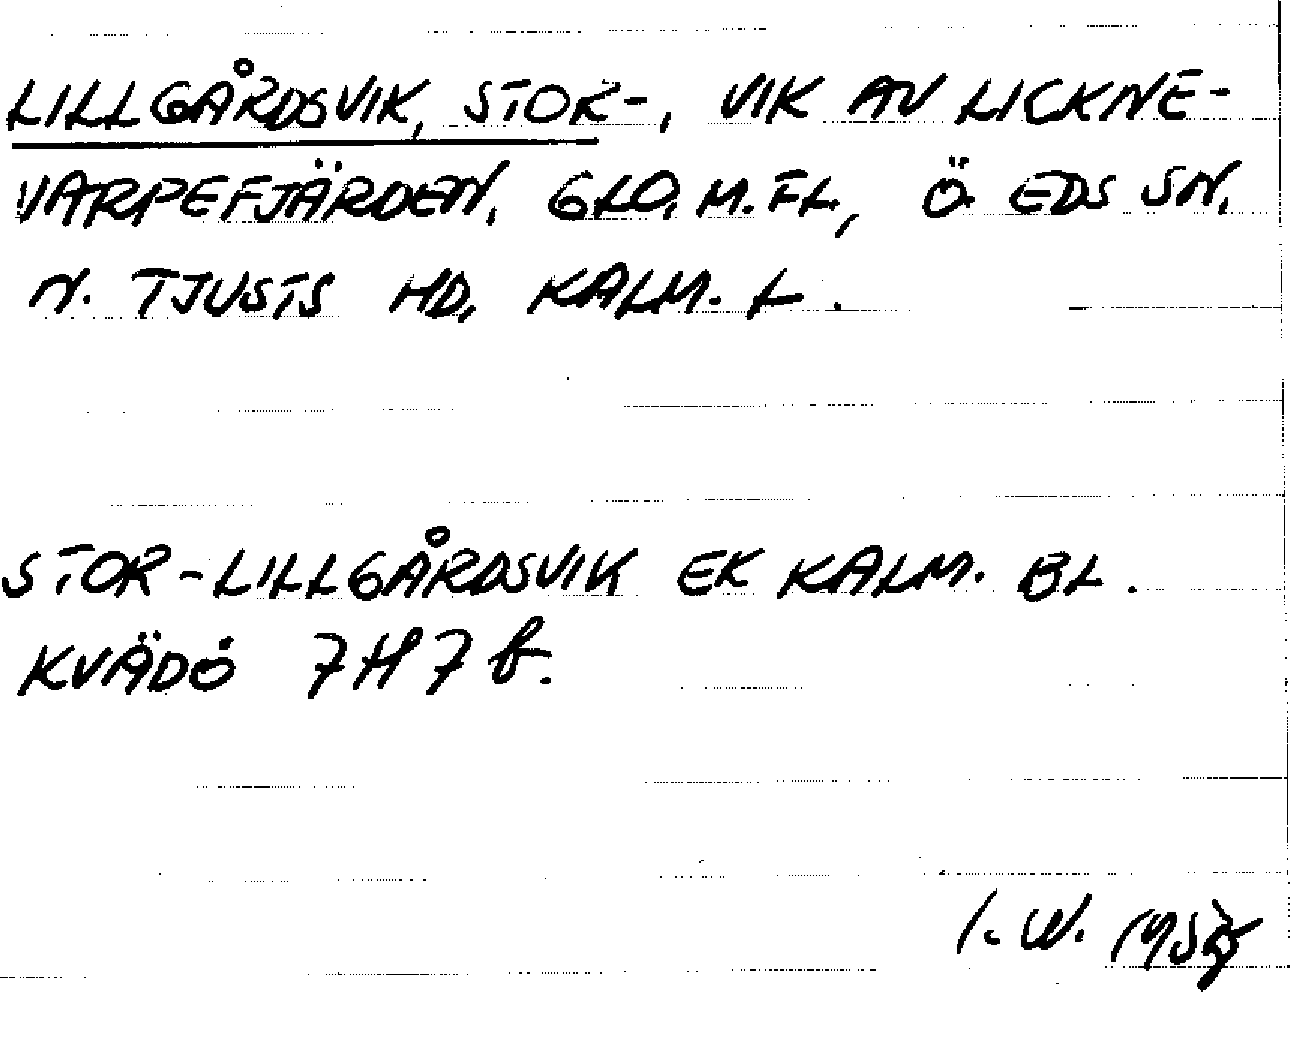 LILLGÅRDSVIK, STOR-, VIK AV LICKNE-
VARPEFJÄRDEN, GLO, M. FL., Ö. EDS SN,
N. TJUSTS HD, KALM. L.
STOR-LILLGÅRDSVIK EK KALM. BL.
KVÄDÖ 7H 7 b.
I. W.